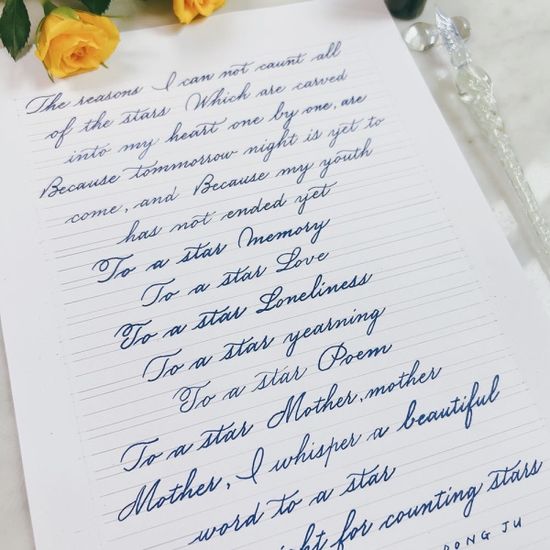 The reasons I can not caunt all
of the stars Which are carved
into my heart one by one, are
Because tommorrow night is yet to
come, and Because my youth
has not ended yet
To a star Memory
To a star Love
To a star Loneliness
To a star yearning
To a star Poem
To a star Mother, mother
Mother, I whisper a beautiful
word to a star
for counting stars
DONG JU